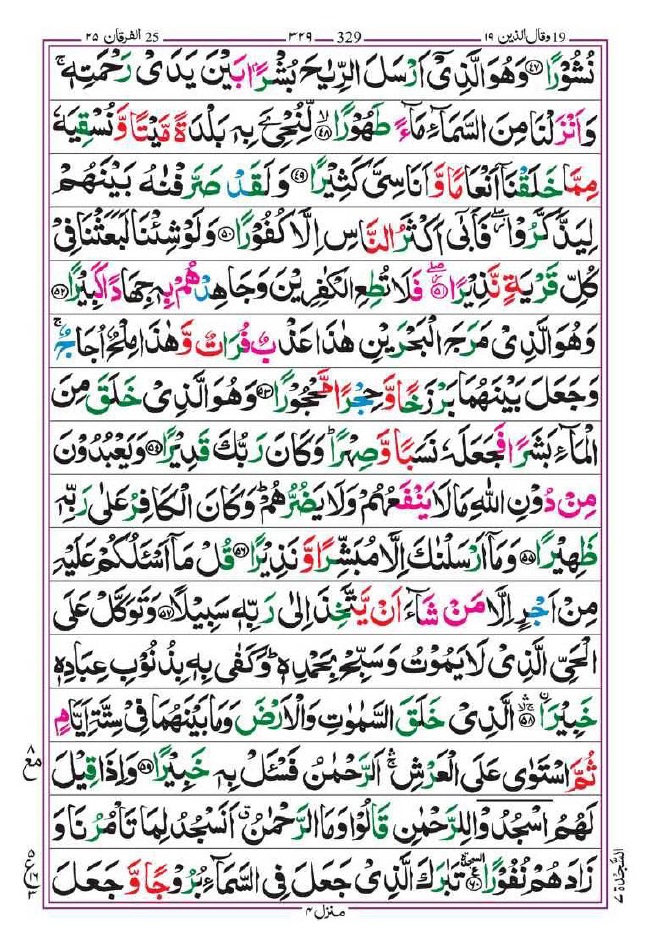 19 وقال الذین ۱۹ 329 ۳۲۹ 25 الفرقان ۲۵
نُشُوْرًا ﴿۴۷﴾ وَهُوَ الَّذِیْۤ اَرْسَلَ الرِّیٰحَ بُشْرًۢا بَیْنَ یَدَیْ رَحْمَتِهٖ ۚ
وَاَنْزَلْنَا مِنَ السَّمَآءِ مَآءً طَهُوْرًا ﴿۴۸﴾ ۙ لِّنُحْیَِۧ بِهٖ بَلْدَةً مَّیْتًا وَّنُسْقِیَهٗ
مِمَّا خَلَقْنَاۤ اَنْعَامًا وَّاَنَاسِیَّ كَثِیْرًا ﴿۴۹﴾ وَلَقَدْ صَرَّفْنٰهُ بَیْنَهُمْ
لِیَذَّكَّرُوْا ۖ فَاَبٰۤی اَكْثَرُ النَّاسِ اِلَّا كُفُوْرًا ﴿۵۰﴾ وَلَوْ شِئْنَا لَبَعَثْنَا فِیْ
كُلِّ قَرْیَةٍ نَّذِیْرًا ﴿۵۱﴾ ۖ فَلَا تُطِعِ الْكٰفِرِیْنَ وَجَاهِدْهُمْ بِهٖ جِهَادًا كَبِیْرًا ﴿۵۲﴾
وَهُوَ الَّذِیْ مَرَجَ الْبَحْرَیْنِ هٰذَا عَذْبٌ فُرَاتٌ وَّهٰذَا مِلْحٌ اُجَاجٌ ۚ
وَجَعَلَ بَیْنَهُمَا بَرْزَخًا وَّحِجْرًا مَّحْجُوْرًا ﴿۵۳﴾ وَهُوَ الَّذِیْ خَلَقَ مِنَ
الْمَآءِ بَشَرًا فَجَعَلَهٗ نَسَبًا وَّصِهْرًا ؕ وَكَانَ رَبُّكَ قَدِیْرًا ﴿۵۴﴾ وَیَعْبُدُوْنَ
مِنْ دُوْنِ اللّٰهِ مَا لَا یَنْفَعُهُمْ وَلَا یَضُرُّهُمْ ؕ وَكَانَ الْكَافِرُ عَلٰی رَبِّهٖ
ظَهِیْرًا ﴿۵۵﴾ وَمَاۤ اَرْسَلْنٰكَ اِلَّا مُبَشِّرًا وَّنَذِیْرًا ﴿۵۶﴾ قُلْ مَاۤ اَسْـَٔلُكُمْ عَلَیْهِ
مِنْ اَجْرٍ اِلَّا مَنْ شَآءَ اَنْ یَّتَّخِذَ اِلٰی رَبِّهٖ سَبِیْلًا ﴿۵۷﴾ وَتَوَكَّلْ عَلَی
الْحَیِّ الَّذِیْ لَا یَمُوْتُ وَسَبِّحْ بِحَمْدِهٖ ؕ وَكَفٰی بِهٖ بِذُنُوْبِ عِبَادِهٖ
خَبِیْرًا ﴿۵۸﴾ ۚۛۙ الَّذِیْ خَلَقَ السَّمٰوٰتِ وَالْاَرْضَ وَمَا بَیْنَهُمَا فِیْ سِتَّةِ اَیَّامٍ
ثُمَّ اسْتَوٰی عَلَی الْعَرْشِ ۚۛ اَلرَّحْمٰنُ فَسْـَٔلْ بِهٖ خَبِیْرًا ﴿۵۹﴾ وَاِذَا قِیْلَ
لَهُمُ اسْجُدُوْا لِلرَّحْمٰنِ قَالُوْا وَمَا الرَّحْمٰنُ ۗ اَنَسْجُدُ لِمَا تَاْمُرُنَا وَ
زَادَهُمْ نُفُوْرًا ﴿۶۰﴾ السجدة تَبٰرَكَ الَّذِیْ جَعَلَ فِی السَّمَآءِ بُرُوْجًا وَّجَعَلَ
منزل ۴
مع ۸
۵ ع ۱۶ ۳
السَّجْدَة ۷